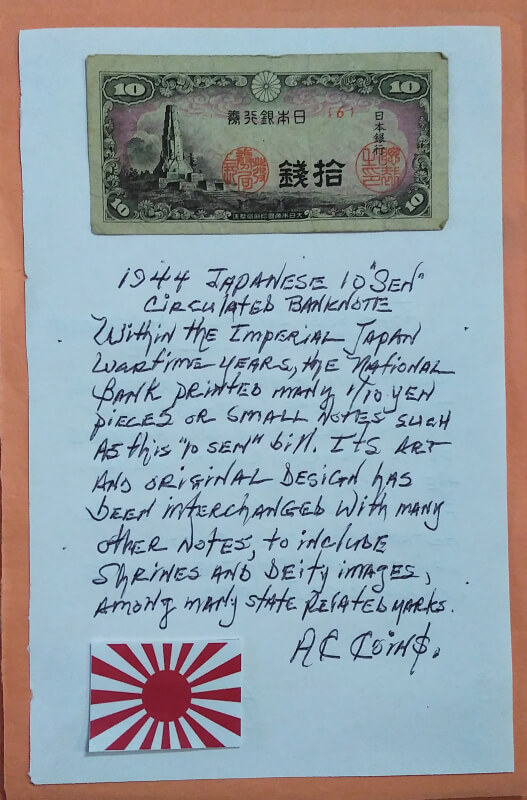 10
10
日本銀行券
{6}
日本銀行
拾錢
10
10
1944 JAPANESE 10 "SEN"
CIRCULATED BANKNOTE
WITHIN THE IMPERIAL JAPAN
WARTIME YEARS, THE NATIONAL
BANK PRINTED MANY 1/10 YEN
PIECES OR SMALL NOTES SUCH
AS THIS "10 SEN" BILL. ITS ART
AND ORIGINAL DESIGN HAS
BEEN INTERCHANGED WITH MANY
OTHER NOTES, TO INCLUDE
SHRINES AND DEITY IMAGES,
AMONG MANY STATE RELATED MARKS.
AC COIN$.